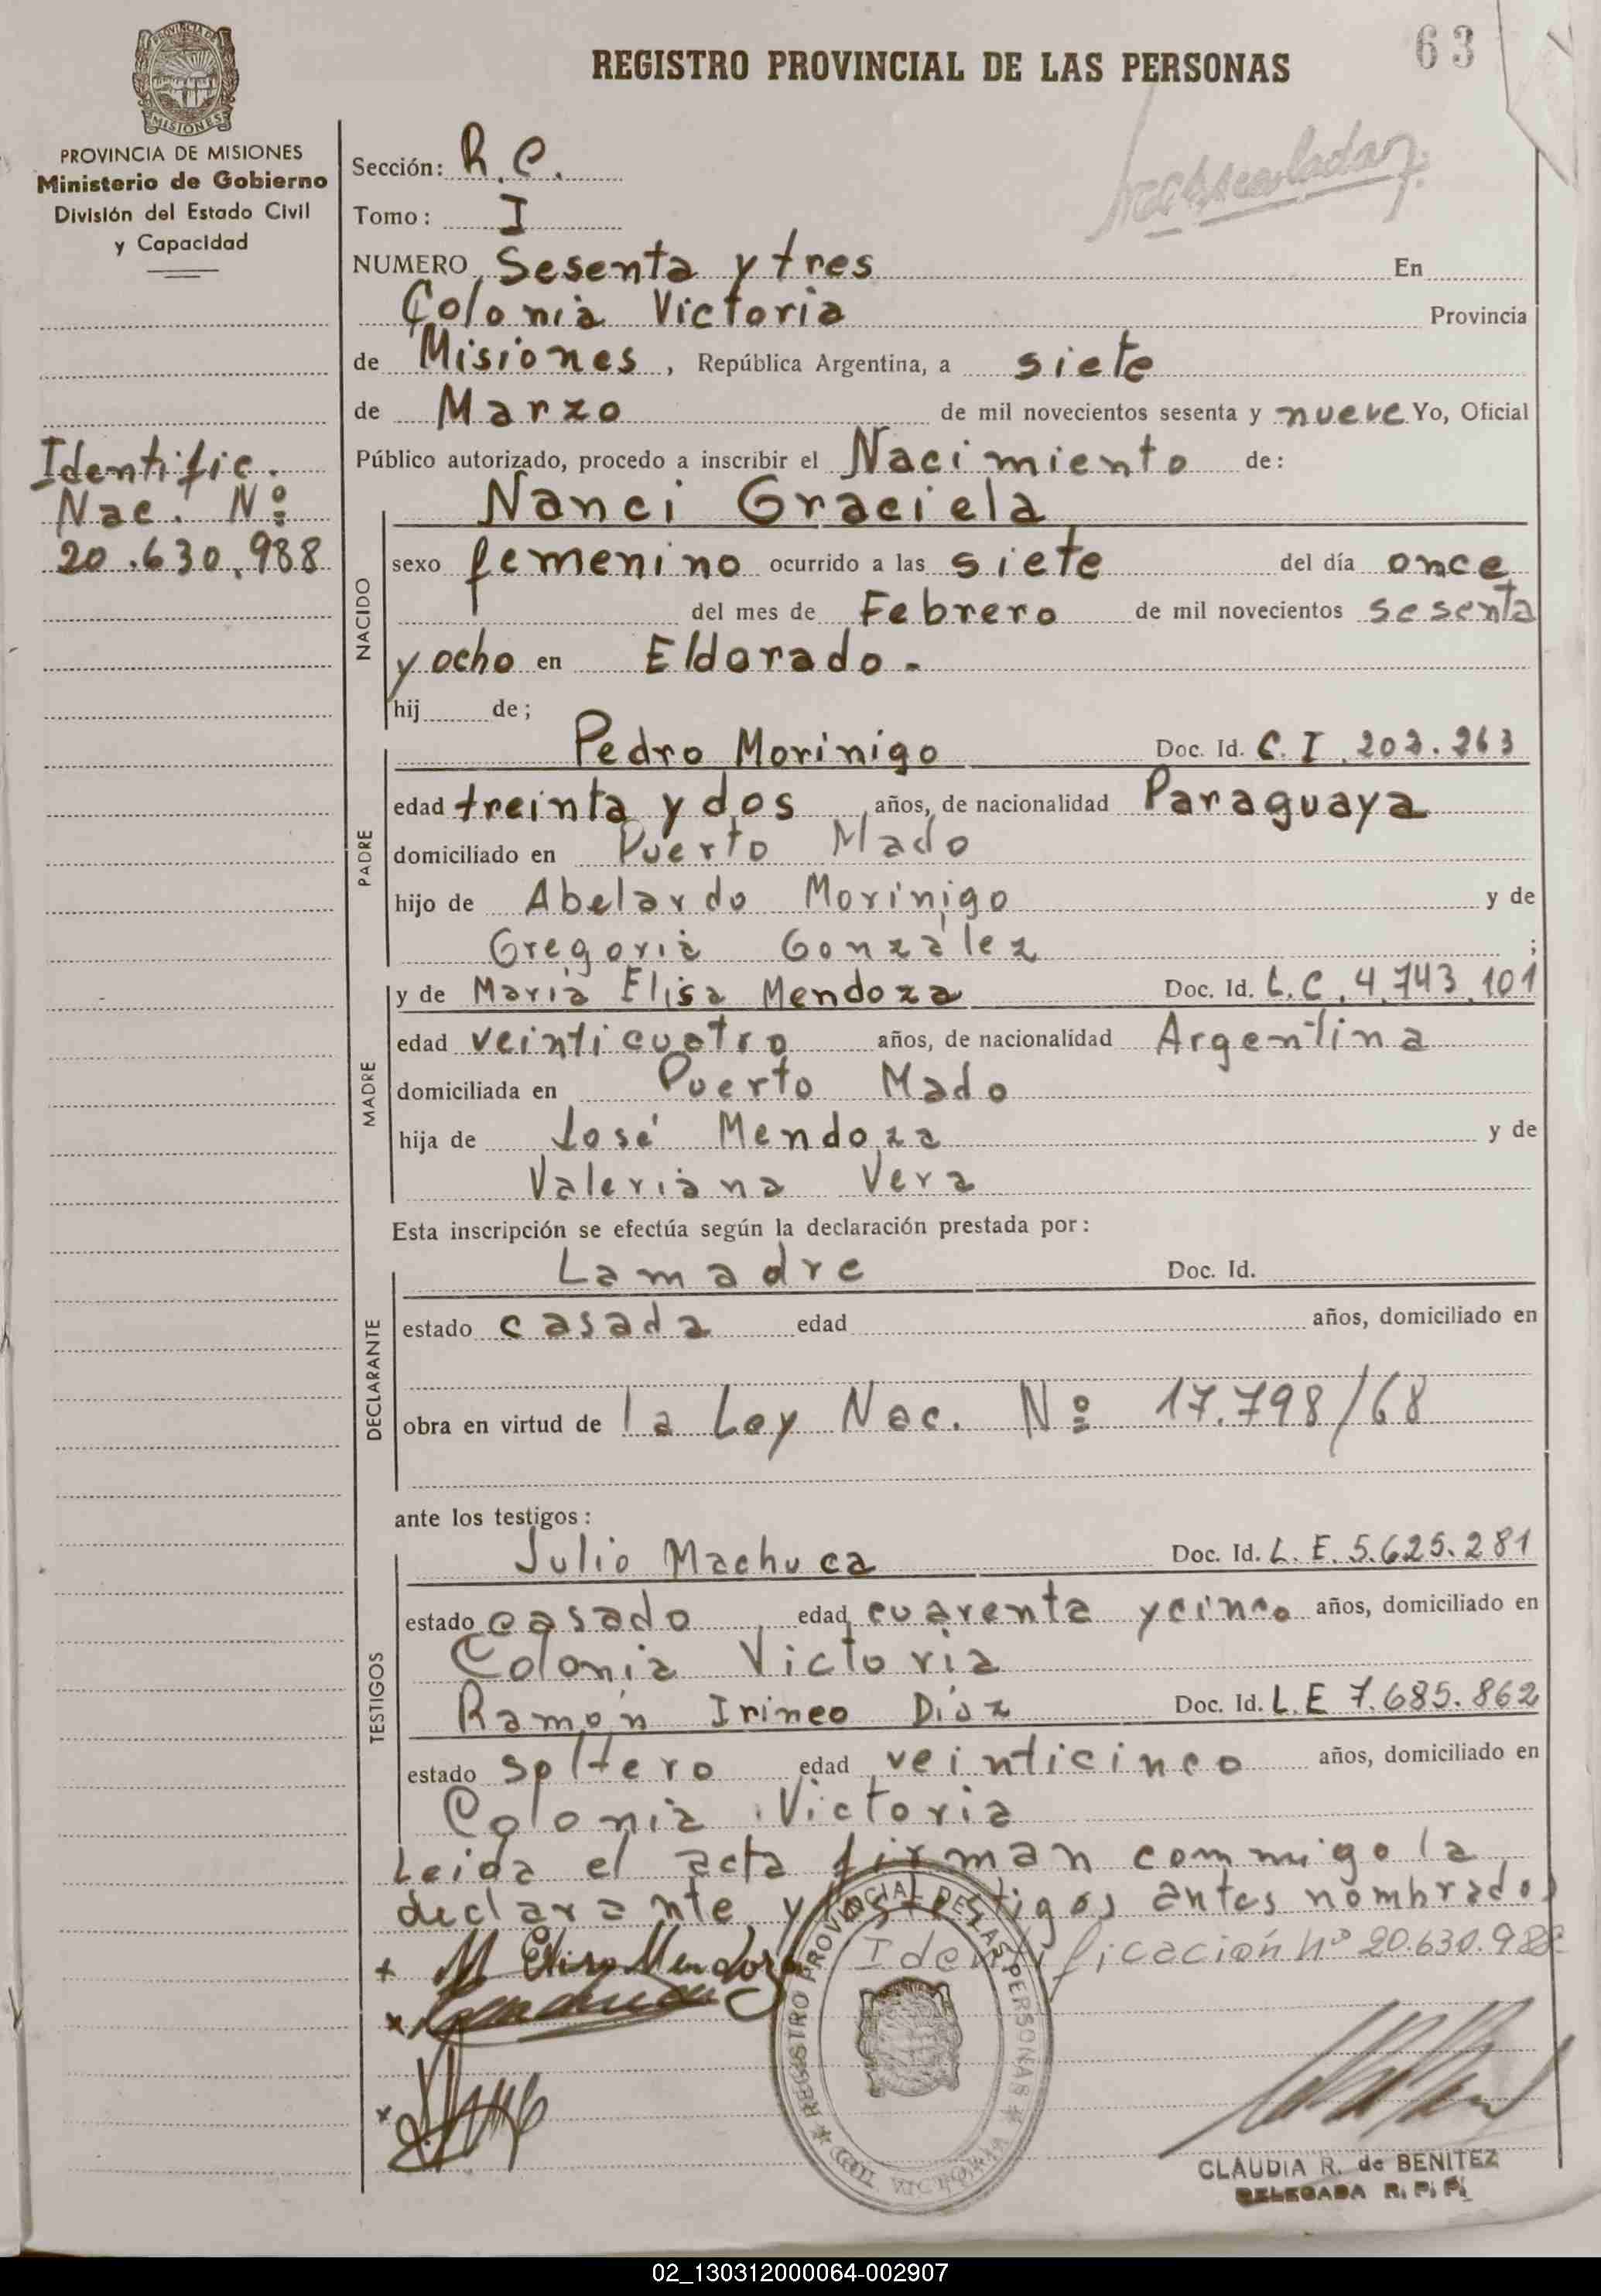 63
REGISTRO PROVINCIAL DE LAS PERSONAS
PROVINCIA DE MISIONES
PROVINCIA DE MISIONES
Ministerio de Gobierno
División del Estado Civil
y Capacidad
Sección: R.C.
Tomo: I
NUMERO Sesenta y tres En
Colonia Victoria Provincia
de Misiones, República Argentina, a siete
de Marzo de mil novecientos sesenta y nueve Yo, Oficial
Público autorizado, procedo a inscribir el Nacimiento de:
Identific.
Nac. Nº
20.630.988
NACIDO
Nanci Graciela
sexo femenino ocurrido a las siete del día once
del mes de Febrero de mil novecientos sesenta
y ocho en Eldorado.
hij de;
PADRE
Pedro Morinigo Doc. Id. C.I. 202.263
edad treinta y dos años, de nacionalidad Paraguaya
domiciliado en Puerto Mado
hijo de Abelardo Morinigo y de
Gregoria González ;
MADRE
y de Maria Elisa Mendoza Doc. Id. L.C. 4.743.101
edad veinticuatro años, de nacionalidad Argentina
domiciliada en Puerto Mado
hija de José Mendoza y de
Valeriana Vera
Esta inscripción se efectúa según la declaración prestada por:
DECLARANTE
La madre Doc. Id.
estado casada edad años, domiciliado en
obra en virtud de la Ley Nac. Nº 17.798/68
ante los testigos:
TESTIGOS
Julio Machuca Doc. Id. L.E. 5.625.281
estado casado edad cuarenta y cinco años, domiciliado en
Colonia Victoria
Ramón Irineo Díaz Doc. Id. L.E 7.685.862
estado soltero edad veinticinco años, domiciliado en
Colonia Victoria
Leida el acta firman commigo la
declarante y los testigos antes nombrados
Identificación nº 20.630.988
M Elisa Mendoza
REGISTRO PROVINCIAL DE LAS PERSONAS
COL. VICTORIA
CLAUDIA R. de BENITEZ
DELEGADA R. P. P.
02_130312000064-002907